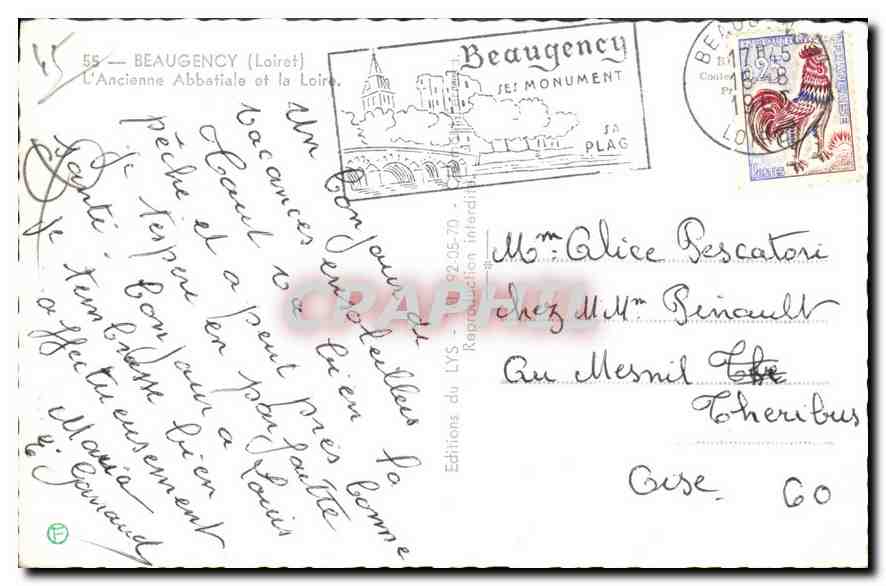 45
55 — BEAUGENCY (Loiret)
L'Ancienne Abbatiale et la Loire.
Beaugency
SES MONUMENT
SA
PLAG
BEAUG
17H45
18-8
19
LO
Postes
Un bonjour de
vacances ensoleillées la
tout va bien bonne
pêche et a peut près
je t'espère en parfaite
santé. bonjour a Louis
je t'embrasse bien
affectueusement
Maria
Ganaud
Mme Alice Pescatori
chez M Mme Pinault
au Mesnil The
Theribus
Oise. 60
Editions du LYS - 92.05-70 -
Reproduction interdite
CPAPHIL
F